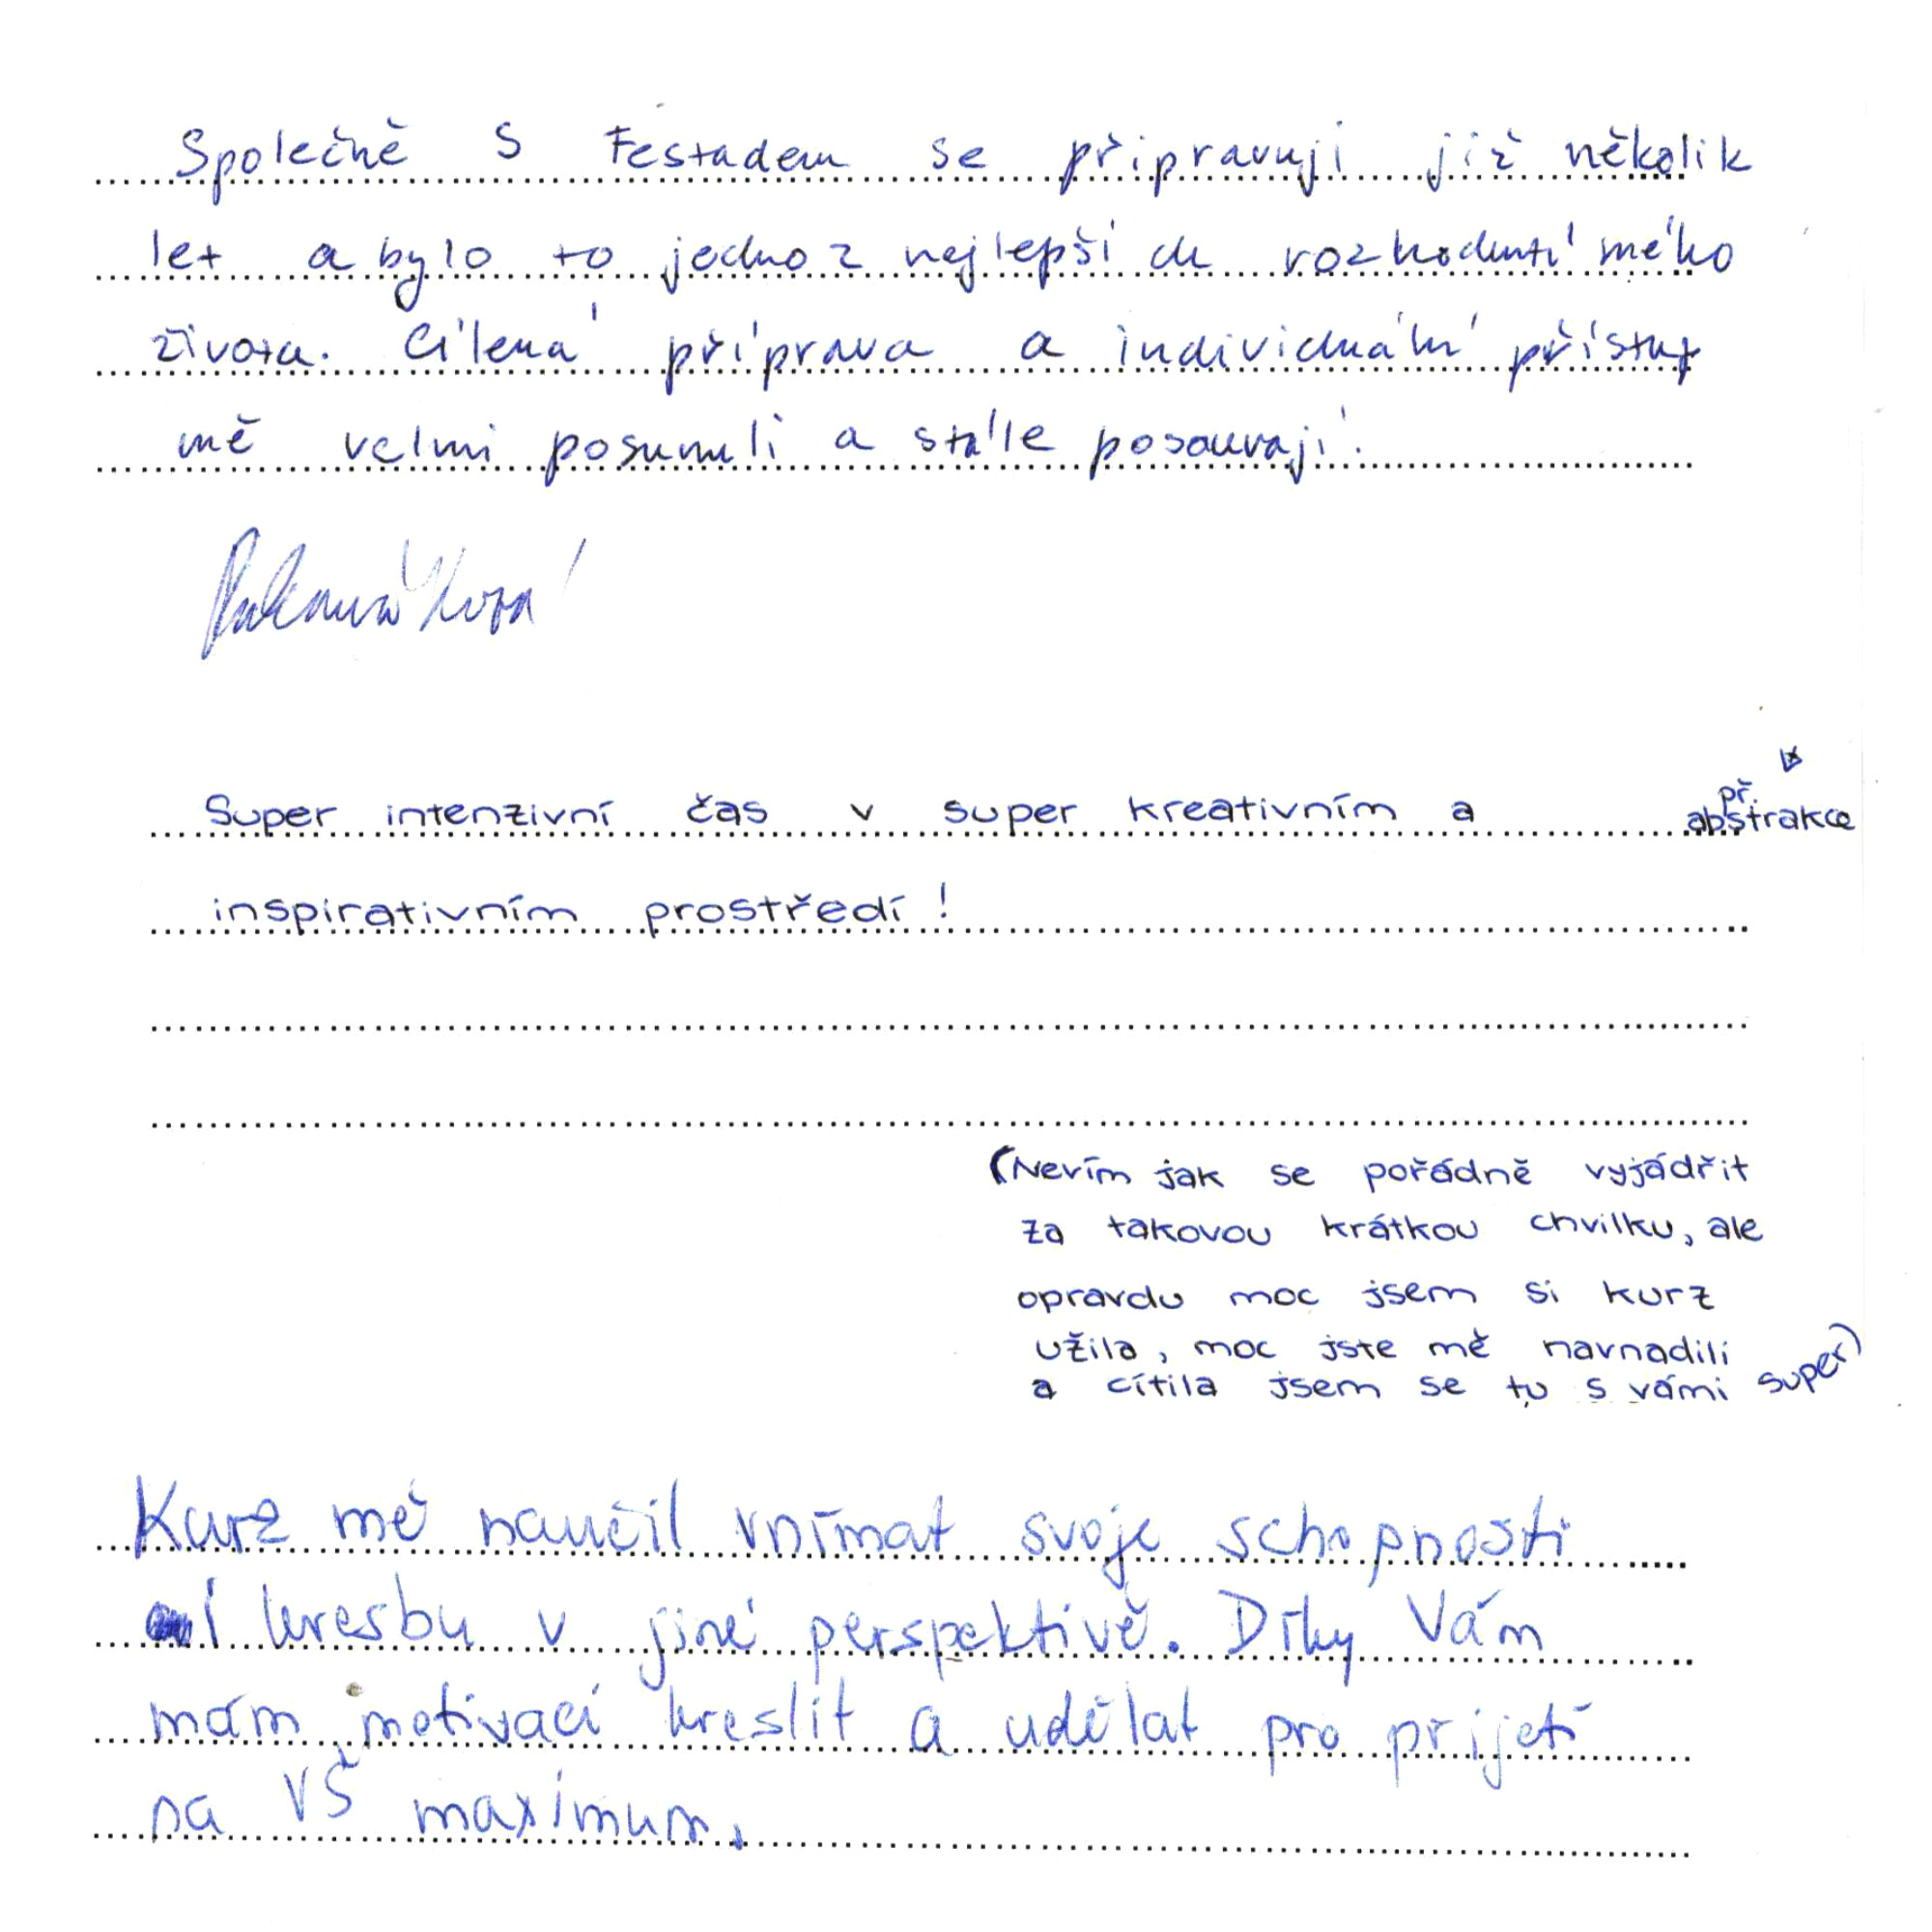 Společně s Festadem se připravuji již několik
let a bylo to jedno z nejlepších rozhodnutí mého
života. Cílená příprava a individuální přístup
mě velmi posunuli a stále posouvají.
př.
Super intenzivní čas v super kreativním a abstrakce
inspirativním prostředí!
(Nevím jak se pořádně vyjádřit
za takovou krátkou chvilku, ale
opravdu moc jsem si kurz
užila, moc jste mě navnadili
a cítila jsem se tu s vámi super)
Kurz mě naučil vnímat svoje schopnosti
i kresbu v jiné perspektivě. Díky Vám
mám motivaci kreslit a udělat pro prijetí
na VŠ maximum.